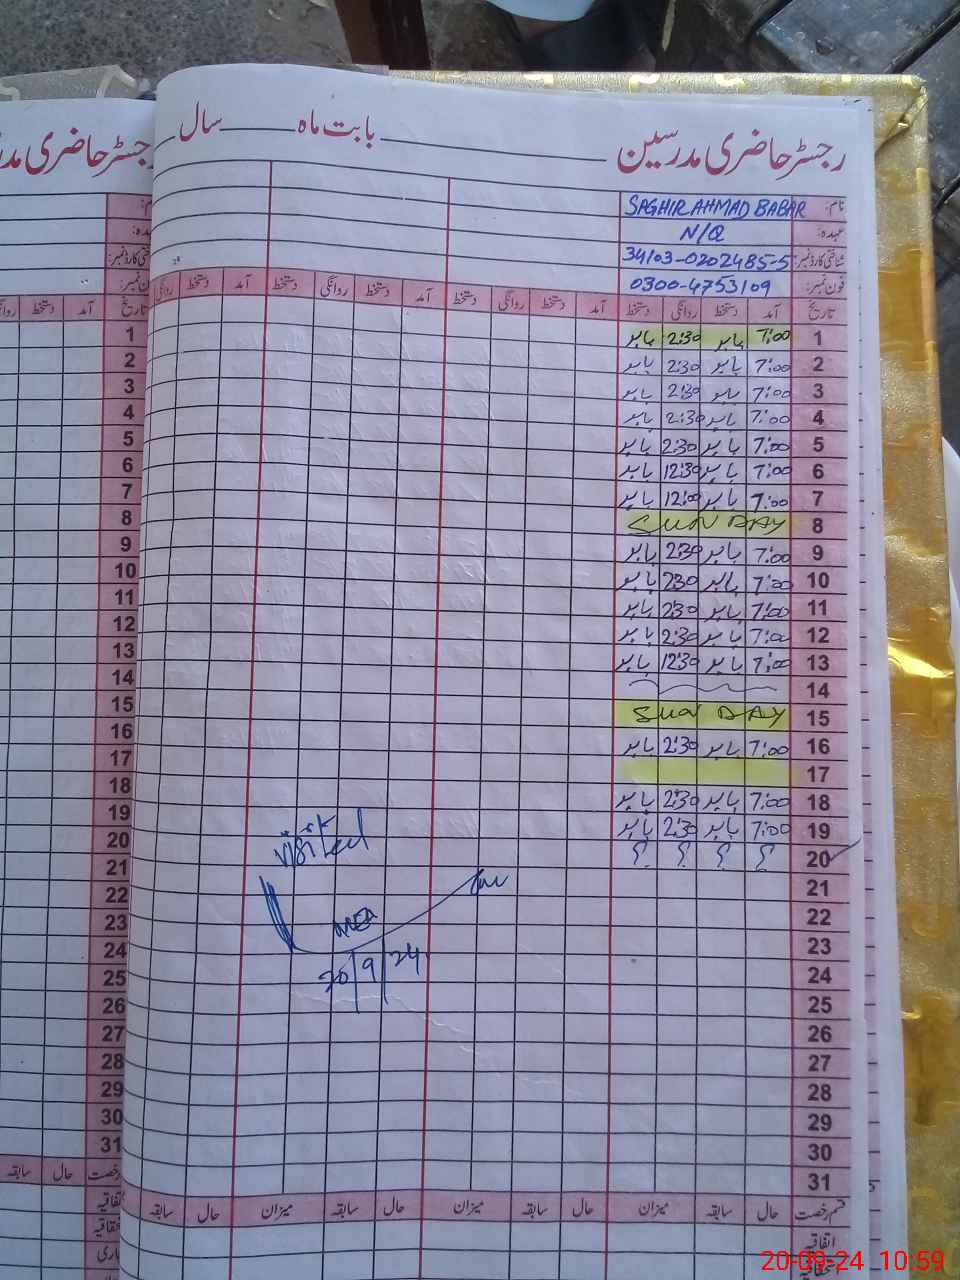 رجسٹر حاضری مدرسین ــــــ بابت ماہ ــــــ سال ــــــ
نام: SAGHIR AHMAD BABAR
عہدہ: N/Q
شناختی کارڈ نمبر: 34103-0202485-5
فون نمبر: 0300-4753109
تاریخ آمد دستخط روانگی دستخط آمد دستخط روانگی دستخط آمد دستخط روانگی دستخط
1 7:00 بابر 2:30 بابر
2 7:00 بابر 2:30 بابر
3 7:00 بابر 2:30 بابر
4 7:00 بابر 2:30 بابر
5 7:00 بابر 2:30 بابر
6 7:00 بابر 12:30 بابر
7 7:00 بابر 12:00 بابر
8 SUN DAY
9 7:00 بابر 2:30 بابر
10 7:00 بابر 2:30 بابر
11 7:00 بابر 2:30 بابر
12 7:00 بابر 2:30 بابر
13 7:00 بابر 12:30 بابر
14
15 SUN DAY
16 7:00 بابر 2:30 بابر
17
18 7:00 بابر 2:30 بابر
19 7:00 بابر 2:30 بابر
20 ؟ ؟ ؟ ؟
21
22
23
24
25
26
27
28
29
30
31
قسم رخصت حال سابقہ میزان حال سابقہ میزان حال سابقہ میزان حال سابقہ
اتفاقیہ
Visited
MEA
20/9/24
رجسٹر حاضری
تاریخ آمد دستخط
1
2
3
4
5
6
7
8
9
10
11
12
13
14
15
16
17
18
19
20
21
22
23
24
25
26
27
28
29
30
31
رخصت حال سابقہ
20-09-24 10:59